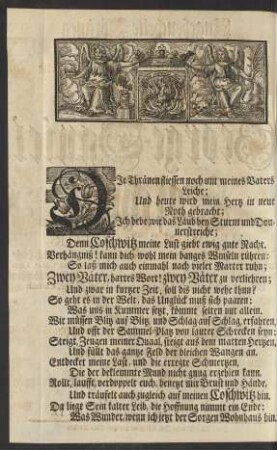 Die Thränen fliessen noch um meines Vaters
Leiche;
Und heute wird mein Hertz in neue
Noth gebracht;
Ich bebe, wie das Laub bey Sturm und Don-
nerstreiche;
Denn Coschwitz meine Lust giebt ewig gute Nacht.
Verhängniß! kann dich wohl mein banges Winseln rühren:
So laß mich auch einmahl nach vieler Marter ruhn;
Zwey Väter, hartes Wort! zwey Väter zu verliehren;
Und zwar in kurtzer Zeit, soll dis nicht wehe thun?
So geht es in der Welt, das Unglück muß sich paaren:
Was uns in Kummer setzt, kömmt selten nur allein.
Wir müssen Blitz auf Blitz, und Schlag auf Schlag erfahren,
Und offt der Sammel-Platz von lauter Schrecken seyn;
Steigt, Zeugen meiner Quaal, steigt aus dem matten Hertzen,
Und füllt das gantze Feld der bleichen Wangen an.
Entdecket meine Last, und die erregte Schmertzen,
Die der beklemmte Mund nicht gnug erzehlen kann.
Rollt, laufft, verdoppelt euch, benetzt mir Brust und Hände,
Und träufelt auch zugleich auf meinen Coschwitz hin.
Da liegt Sein kalter Leib, die Hoffnung nimmt ein Ende:
Was Wunder, wenn ich jetzt der Sorgen Wohnhaus bin.